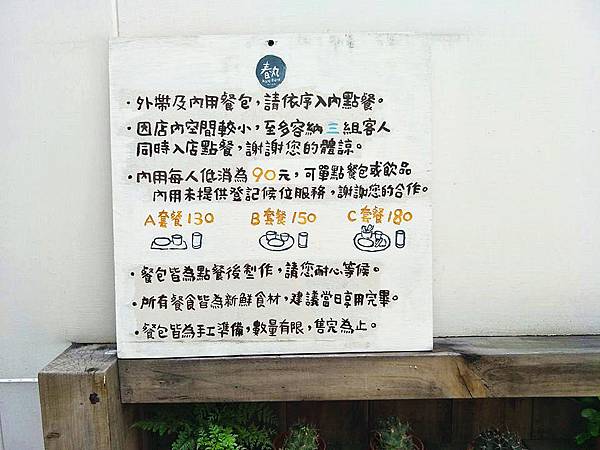 春丸
・外帶及內用餐包，請依序入內點餐。
・因店內空間較小，至多容納三組客人
同時入店點餐，謝謝您的體諒。
・內用每人低消為90元，可單點餐包或飲品
內用未提供登記候位服務，謝謝您的合作。
A套餐130 B套餐150 C套餐180
・餐包皆為點餐後製作，請您耐心等候。
・所有餐食皆為新鮮食材，建議當日享用完畢。
・餐包皆為手工準備，數量有限，售完為止。